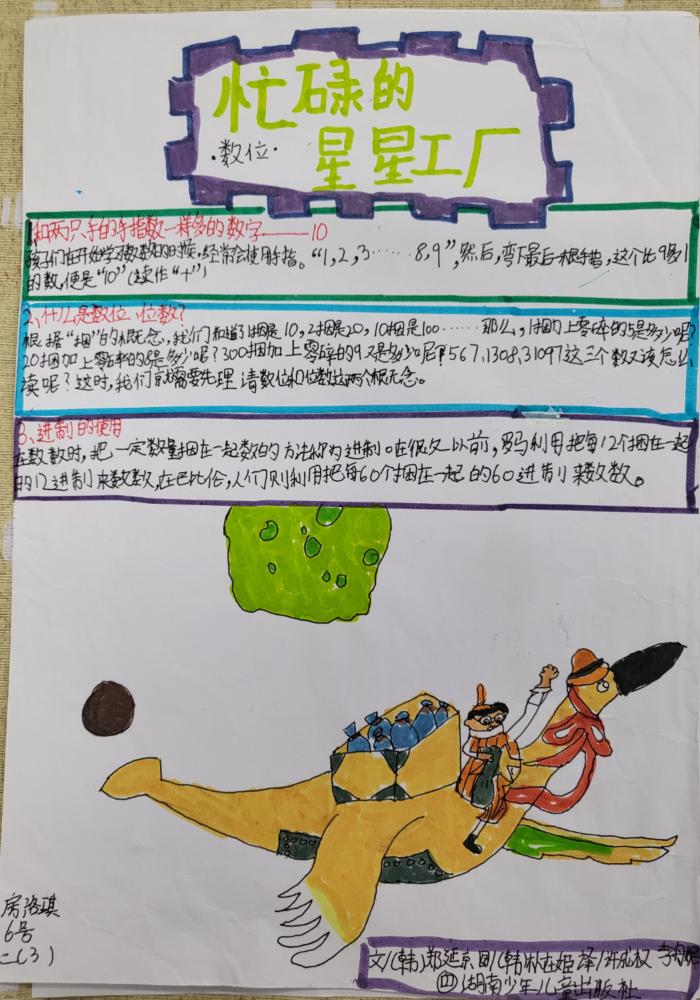 忙碌的
·数位·
星星工厂
1.和两只手的手指数一样多的数字——10
孩子们在开始学习数数的时候,经常会使用手指。“1,2,3……8,9”,然后,弯下最后一根手指,这个比9多1
的数,便是“10”(读作“十”)
2、什么是数位、位数?
根据“捆”的概念,我们知道了1捆是10,2捆是20,10捆是100……那么,1捆加上零碎的5是多少呢?
20捆加上零碎的8是多少呢?300捆加上零碎的9又是多少呢?567,1308,31097这三个数又该怎么
读呢?这时,我们就需要先理请数位和位数这两个概念。
3、进制的使用
在数数时,把一定数量捆在一起数的方法称为进制。在很久以前,罗马利用把每12个捆在一起
的12进制来数数,在巴比伦,人们则利用把每60个捆在一起的60进制来数数。
房洛琪
6号
二(3)
文/(韩)郑延京 图/(韩)林在姬 译/许成权 李
湖南少年儿童出版社